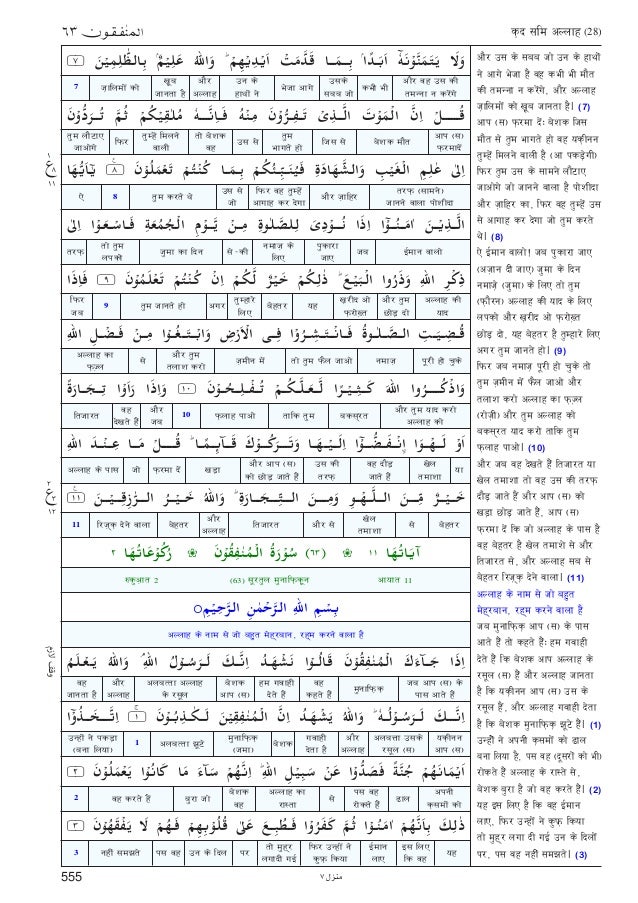 المنٰفقون ٦٣
क़द समि अल्लाह (28)
وَلَا يَتَمَنَّوْنَهٗٓ اَبَدًۢا بِمَا قَدَّمَتْ اَيْدِيْهِمْ ؕ وَاللّٰهُ عَلِيْمٌۢ بِالظّٰلِمِيْنَ ٧
और वह उस की तमन्ना न करेंगे | कभी भी | उसके सबब जो | भेजा आगे | उन के हाथों ने | और अल्लाह | खूब जानता है | ज़ालिमों को | 7
قُلْ اِنَّ الْمَوْتَ الَّذِيْ تَفِرُّوْنَ مِنْهُ فَاِنَّهٗ مُلٰقِيْكُمْ ثُمَّ تُرَدُّوْنَ
आप (स) फ़रमादें | बेशक मौत | जिस से | तुम भागते हो | उस से | तो बेशक वह | तुम्हें मिलने वाली | फिर | तुम लौटाए जाओगे
اِلٰى عٰلِمِ الْغَيْبِ وَالشَّهَادَةِ فَيُنَبِّئُكُمْ بِمَا كُنْتُمْ تَعْمَلُوْنَ ٨ يٰٓاَيُّهَا
तरफ़ (सामने) जानने वाला पोशीदा | और ज़ाहिर | फिर वह तुम्हें आगाह कर देगा | उस से जो | तुम करते थे | 8 | ऐ
الَّذِيْنَ اٰمَنُوْٓا اِذَا نُوْدِيَ لِلصَّلٰوةِ مِنْ يَّوْمِ الْجُمُعَةِ فَاسْعَوْا اِلٰى
ईमान वालो | जब | पुकारा जाए | नमाज़ के लिए | से -की | जुमा का दिन | तो तुम लपको | तरफ़
ذِكْرِ اللّٰهِ وَذَرُوا الْبَيْعَ ؕ ذٰلِكُمْ خَيْرٌ لَّكُمْ اِنْ كُنْتُمْ تَعْلَمُوْنَ ٩ فَاِذَا
अल्लाह की याद | और तुम छोड़ दो | ख़रीद ओ फ़रोख़्त | यह | बेहतर | तुम्हारे लिए | अगर | तुम जानते हो | 9 | फिर जब
قُضِيَتِ الصَّلٰوةُ فَانْتَشِرُوْا فِي الْاَرْضِ وَابْتَغُوْا مِنْ فَضْلِ اللّٰهِ
पूरी हो चुके | नमाज़ | तो तुम फैल जाओ | ज़मीन में | और तुम तलाश करो | से | अल्लाह का फ़ज़्ल
وَاذْكُرُوا اللّٰهَ كَثِيْرًا لَّعَلَّكُمْ تُفْلِحُوْنَ ١٠ وَاِذَا رَاَوْا تِجَارَةً
और तुम याद करो अल्लाह को | बकस्रत | ताकि तुम | फ़लाह पाओ | 10 | और जब | वह देखते हैं | तिजारत
اَوْ لَهْوَا ۨ انْفَضُّوْٓا اِلَيْهَا وَتَرَكُوْكَ قَآئِمًا ؕ قُلْ مَا عِنْدَ اللّٰهِ
या | खेल तमाशा | वह दौड़ जाते हैं | उस की तरफ़ | और आप (स) को छोड़ जाते हैं | खड़ा | फ़रमा दें | जो | अल्लाह के पास
خَيْرٌ مِّنَ اللَّهْوِ وَمِنَ التِّجَارَةِ ؕ وَاللّٰهُ خَيْرُ الرّٰزِقِيْنَ ١١
बेहतर | से | खेल तमाशा | और से | तिजारत | और अल्लाह | बेहतर | रिज़्क़ देने वाला | 11
اٰيَاتُهَا ١١ ❀ (٦٣) سُوْرَةُ الْمُنٰفِقُوْنَ ❀ رُكُوْعَاتُهَا ٢
आयात 11 (63) सूरतुल मुनाफ़िक़ून रुकुआत 2
بِسْمِ اللّٰهِ الرَّحْمٰنِ الرَّحِيْمِ
अल्लाह के नाम से जो बहुत मेह्रबान, रह्म करने वाला है
اِذَا جَآءَكَ الْمُنٰفِقُوْنَ قَالُوْا نَشْهَدُ اِنَّكَ لَرَسُوْلُ اللّٰهِ ۘ وَاللّٰهُ يَعْلَمُ
जब आप (स) के पास आते हैं | मुनाफ़िक़ | वह कहते हैं | हम गवाही देते हैं | बेशक आप (स) | अलबत्ता अल्लाह के रसूल | और अल्लाह | वह जानता है
اِنَّكَ لَرَسُوْلُهٗ ؕ وَاللّٰهُ يَشْهَدُ اِنَّ الْمُنٰفِقِيْنَ لَكٰذِبُوْنَ ١ اِتَّخَذُوْٓا
यक़ीनन आप (स) | अलबत्ता उसके रसूल (स) | और अल्लाह | गवाही देता है | बेशक | मुनाफ़िक़ (जमा) | अलबत्ता झूटे | 1 | उन्हों ने पकड़ा (बना लिया)
اَيْمَانَهُمْ جُنَّةً فَصَدُّوْا عَنْ سَبِيْلِ اللّٰهِ ؕ اِنَّهُمْ سَآءَ مَا كَانُوْا يَعْمَلُوْنَ ٢
अपनी क़समों को | ढाल | पस वह रोकते हैं | से | अल्लाह का रास्ता | बेशक वह | बुरा जो | वह करते हैं | 2
ذٰلِكَ بِاَنَّهُمْ اٰمَنُوْا ثُمَّ كَفَرُوْا فَطُبِعَ عَلٰى قُلُوْبِهِمْ فَهُمْ لَا يَفْقَهُوْنَ ٣
यह | इस लिए कि वह | ईमान लाए | फिर उन्हों ने कुफ़्र किया | तो मुह्र लगादी गई | पर | उन के दिल | पस वह | नहीं समझते | 3
और उस के सबब जो उन के हाथों
ने आगे भेजा है वह कभी भी मौत
की तमन्ना न करेंगे, और अल्लाह
ज़ालिमों को खूब जानता है। (7)
आप (स) फ़रमा दें: बेशक जिस
मौत से तुम भागते हो वह यक़ीनन
तुम्हें मिलने वाली है (आ पकड़ेगी)
फिर तुम उस के सामने लौटाए
जाओगे जो जानने वाला है पोशीदा
और ज़ाहिर का, फिर वह तुम्हें उस
से आगाह कर देगा जो तुम करते
थे। (8)
ऐ ईमान वालो! जब पुकारा जाए
(अज़ान दी जाए) जुमा के दिन
नमाज़े (जुमा) के लिए तो तुम
(फ़ौरन) अल्लाह की याद के लिए
लपको और ख़रीद ओ फ़रोख़्त
छोड़ दो, यह बेहतर है तुम्हारे लिए
अगर तुम जानते हो। (9)
फिर जब नमाज़ पूरी हो चुके तो
तुम ज़मीन में फैल जाओ और
तलाश करो अल्लाह का फ़ज़्ल
(रोज़ी) और तुम अल्लाह को
बकस्रत याद करो ताकि तुम
फ़लाह पाओ। (10)
और जब वह देखते हैं तिजारत या
खेल तमाशा तो वह उस की तरफ़
दौड़ जाते हैं और आप (स) को
खड़ा छोड़ जाते हैं, आप (स)
फ़रमा दें कि जो अल्लाह के पास है
वह बेहतर है खेल तमाशे से और
तिजारत से, और अल्लाह सब से
बेहतर रिज़्क़ देने वाला। (11)
अल्लाह के नाम से जो बहुत
मेह्रबान, रह्म करने वाला है
जब मुनाफ़िक़ आप (स) के पास
आते हैं तो कहते हैं: हम गवाही
देते हैं कि बेशक आप अल्लाह के
रसूल (स) हैं और अल्लाह जानता
है कि यक़ीनन आप (स) उस के
रसूल हैं, और अल्लाह गवाही देता
है कि बेशक मुनाफ़िक़ झूटे हैं। (1)
उन्हों ने अपनी क़समों को ढाल
बना लिया है, पस वह (दूसरों को भी)
रोकते हैं अल्लाह के रास्ते से,
बेशक बुरा है जो वह करते हैं। (2)
यह इस लिए है कि वह ईमान
लाए, फिर उन्हों ने कुफ़्र किया
तो मुह्र लगा दी गई उन के दिलों
पर, पस वह नहीं समझते। (3)
555
منزل ٧